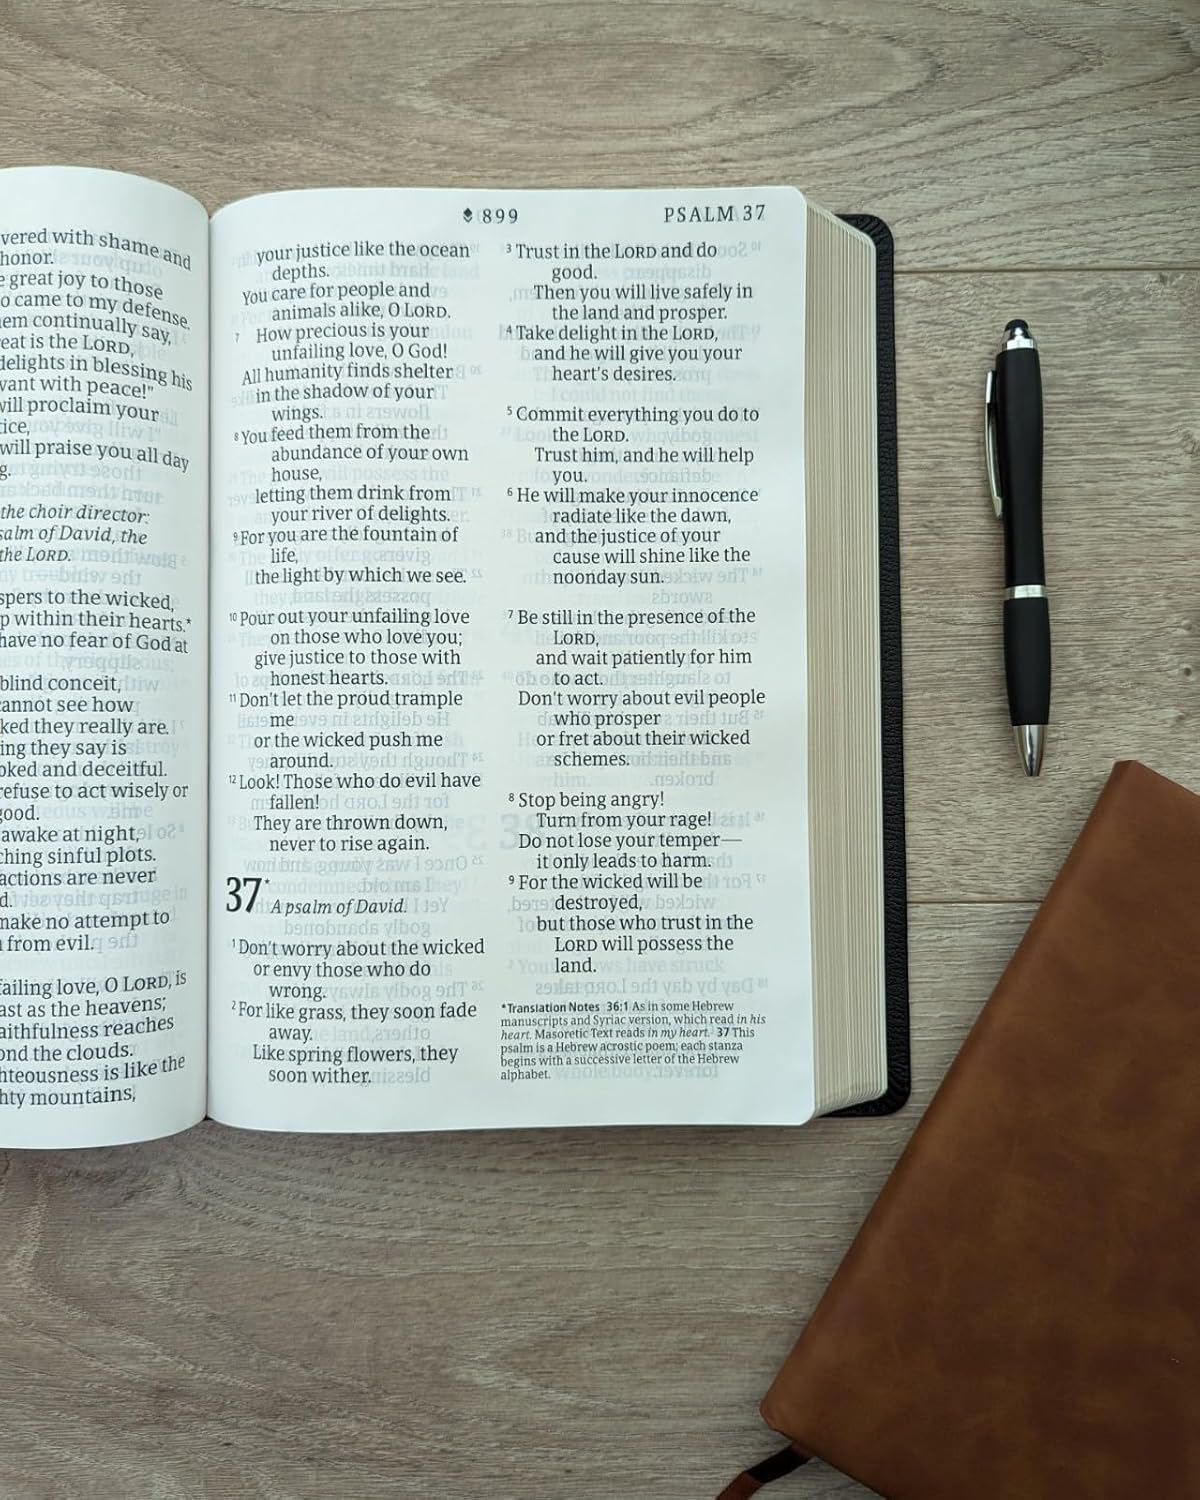 vered with shame and
honor.
great joy to those
o came to my defense.
em continually say,
eat is the LORD,
delights in blessing his
vant with peace!"
will proclaim your
tice,
will praise you all day
g.
the choir director:
salm of David, the
the LORD.
spers to the wicked,
p within their hearts.*
have no fear of God at
blind conceit,
cannot see how
ked they really are.
ing they say is
oked and deceitful.
refuse to act wisely or
good.
awake at night,
ching sinful plots.
actions are never
d.
make no attempt to
from evil.
failing love, O LORD, is
ast as the heavens;
aithfulness reaches
ond the clouds.
hteousness is like the
hty mountains,
899
PSALM 37
your justice like the ocean
depths.
You care for people and
animals alike, O LORD.
7 How precious is your
unfailing love, O God!
All humanity finds shelter
in the shadow of your
wings.
8 You feed them from the
abundance of your own
house,
letting them drink from
your river of delights.
9 For you are the fountain of
life,
the light by which we see.
10 Pour out your unfailing love
on those who love you;
give justice to those with
honest hearts.
11 Don't let the proud trample
me
or the wicked push me
around.
12 Look! Those who do evil have
fallen!
They are thrown down,
never to rise again.
37*
A psalm of David.
1 Don't worry about the wicked
or envy those who do
wrong.
2 For like grass, they soon fade
away.
Like spring flowers, they
soon wither.
3 Trust in the LORD and do
good.
Then you will live safely in
the land and prosper.
4 Take delight in the LORD,
and he will give you your
heart's desires.
5 Commit everything you do to
the LORD.
Trust him, and he will help
you.
6 He will make your innocence
radiate like the dawn,
and the justice of your
cause will shine like the
noonday sun.
7 Be still in the presence of the
LORD,
and wait patiently for him
to act.
Don't worry about evil people
who prosper
or fret about their wicked
schemes.
8 Stop being angry!
Turn from your rage!
Do not lose your temper—
it only leads to harm.
9 For the wicked will be
destroyed,
but those who trust in the
LORD will possess the
land.
*Translation Notes 36:1 As in some Hebrew
manuscripts and Syriac version, which read in his
heart. Masoretic Text reads in my heart. 37 This
psalm is a Hebrew acrostic poem; each stanza
begins with a successive letter of the Hebrew
alphabet.